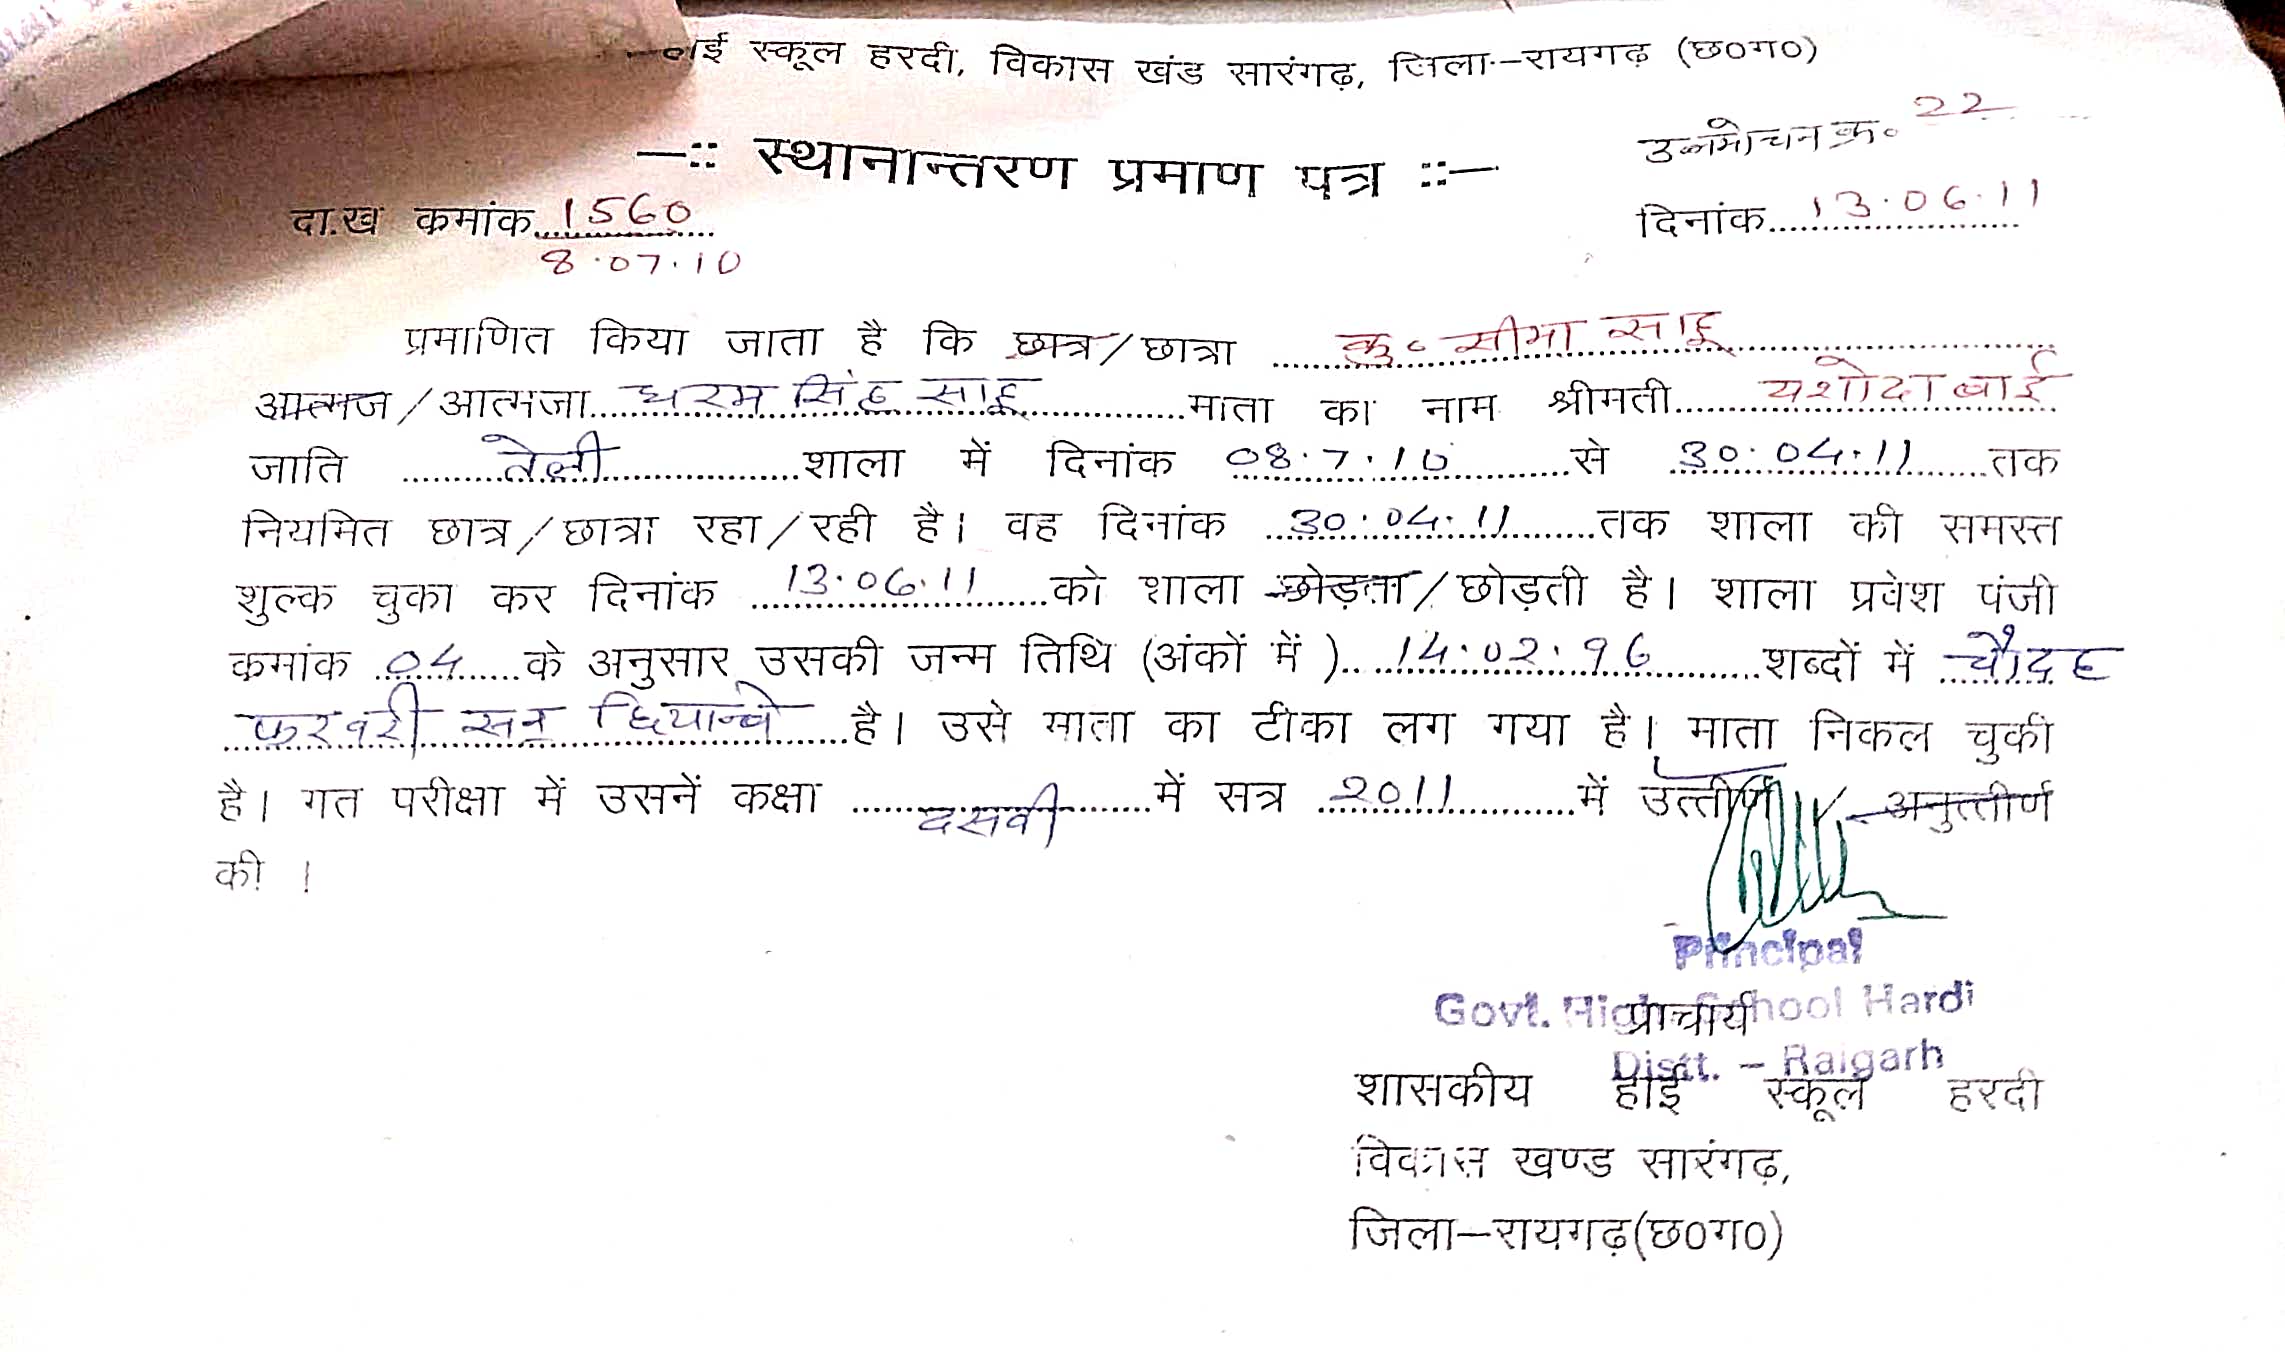 हाई स्कूल हरदी, विकास खंड सारंगढ़, जिला-रायगढ़ (छ०ग०)
उन्मोचन क्र० 22
-:: स्थानान्तरण प्रमाण पत्र ::-
दा.ख कमांक 1560
8.07.10
दिनांक 13.06.11
प्रमाणित किया जाता है कि छात्र/छात्रा कु० सीमा साहू
आत्मज/आत्मजा धरम सिंह साहू माता का नाम श्रीमती यशोदा बाई
जाति तेली शाला में दिनांक 08.7.10 से 30.04.11 तक
नियमित छात्र/छात्रा रहा/रही है। वह दिनांक 30.04.11 तक शाला की समस्त
शुल्क चुका कर दिनांक 13.06.11 को शाला छोड़ता/छोड़ती है। शाला प्रवेश पंजी
कमांक 04 के अनुसार उसकी जन्म तिथि (अंकों में ) 14.02.96 शब्दों में चौदह
फरवरी सन् छियान्वे है। उसे माता का टीका लग गया है। माता निकल चुकी
है। गत परीक्षा में उसनें कक्षा दसवी में सत्र 2011 में उत्तीर्ण/अनुत्तीर्ण
की ।
Principal
Govt. High School Hardi
Distt. - Raigarh
प्राचार्य
शासकीय हाई स्कूल हरदी
विकास खण्ड सारंगढ़,
जिला-रायगढ़(छ०ग०)